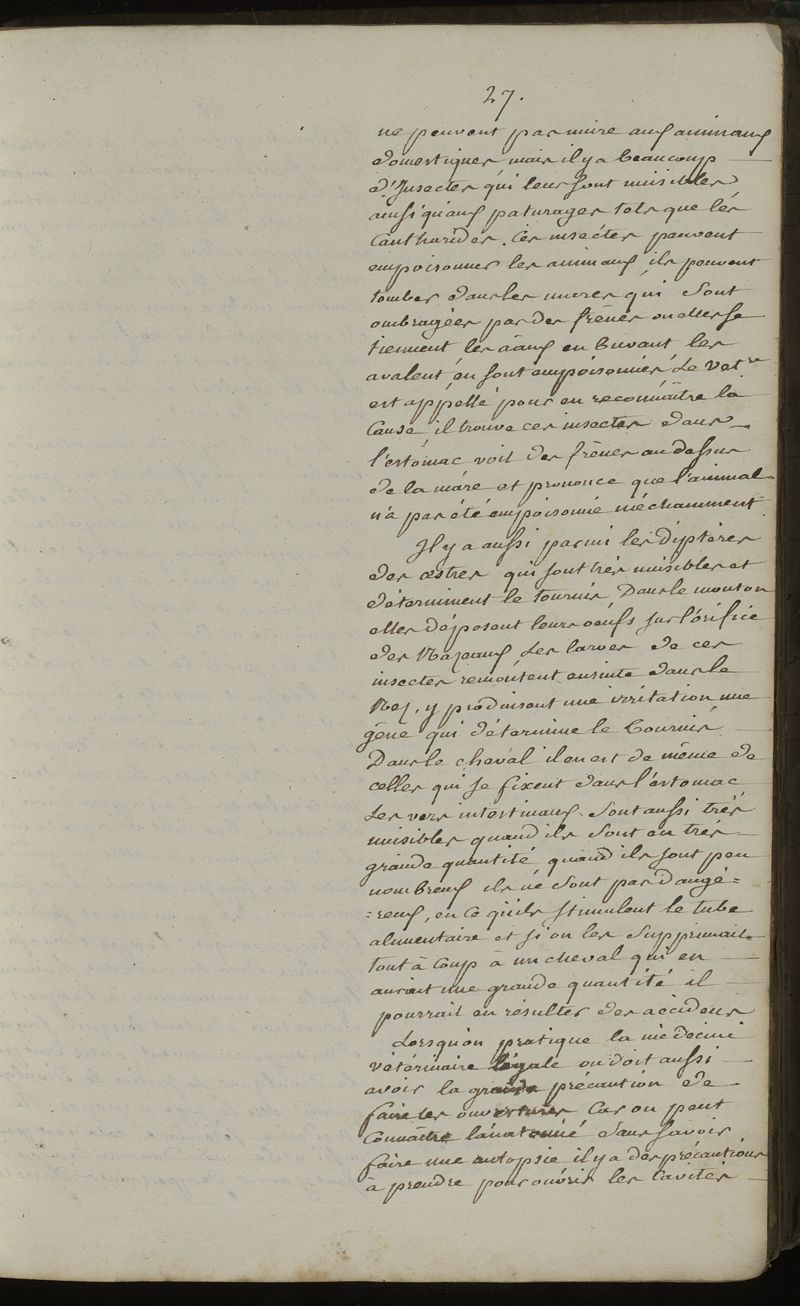 27.
ne peuvent pas nuire aux animaux
domestiques mais il y a beaucoup
d'Insectes qui leur sont nuisibles
ainsi qu'aux paturages tels que les
Cantharides. Ces insectes peuvent
empoisonner les animaux, ils peuvent
tomber dans les mares qui sont
ombragées par des frênes ou elles se
tiennent les eaux en buvant les
avalent en sont empoisonnés. Le Vetre
est appellé pour en reconnaître la
Cause, il trouve ces insectes dans
l'estomac voit des frênes au dessus
de la mare et prononce que l'animal
n'a pas été empoisonné méchamment.
Il y a aussi parmi les diptères
des œstres qui sont très nuisibles et
déterminent le tournis. Dans le mouton
elles déposent leurs oeufs sur l'orifice
des Nazeaux, Les larves de ces
insectes remontent ensuite dans le
Nez, y produisent une irritation une
gêne qui détermine le Tournis.
Dans le cheval il en est de même de
celles qui se fixent dans l'estomac
Les vers intestinaux sont aussi très
nuisibles quand ils sont en très
grande quantité quand ils sont peu
nombreux ils ne sont pas dangé=
=reux, en ce qu'ils stimulent le tube
alimentaire et si on les supprimait
tout à coup à un cheval qui en
aurait une grande quantité il
pourrait en résulter des accidens
Lorsqu'on pratique la médecine
vétérinaire légale on doit aussi
avoir la grande précaution de
faire les ouvertures Car on peut
Connaître l'anatomie sans savoir
faire une autopsie il y a des précautions
à prendre pour ouvrir les Cavités